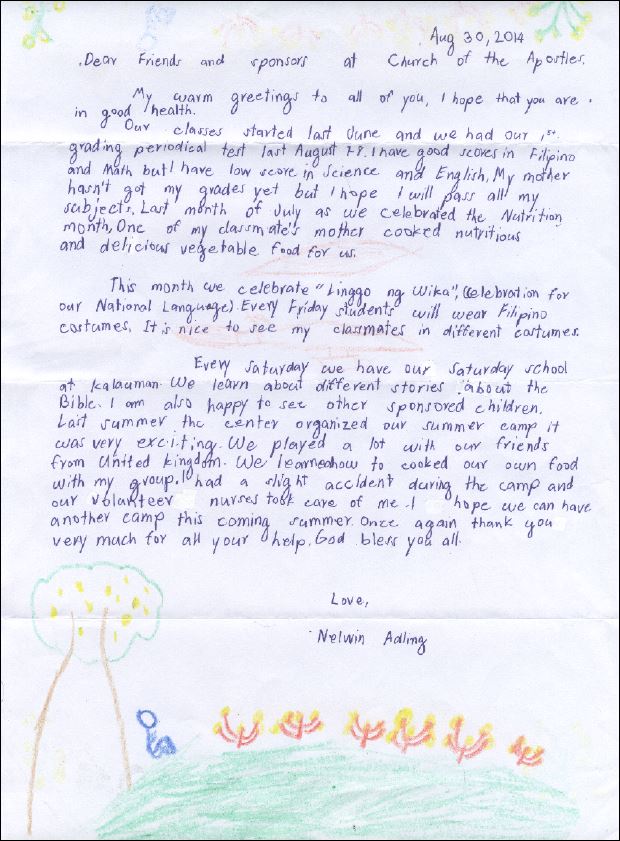 Aug 30, 2014
Dear Friends and sponsors at Church of the Apostles,
My warm greetings to all of you, I hope that you are
in good health.
Our classes started last June and we had our 1st
grading periodical test last August 7-8. I have good scores in Filipino
and Math but I have low score in Science and English, My mother
hasn't got my grades yet but I hope I will pass all my
subjects. Last month of July as we celebrated the Nutrition
month, One of my classmate's mother cooked nutritious
and delicious vegetable food for us.
This month we celebrate "Linggo ng Wika", (Celebration for
our National Language) Every Friday students will wear Filipino
costumes. It is nice to see my classmates in different costumes.
Every saturday we have our saturday school
at kalauman. We learn about different stories about the
Bible. I am also happy to see other sponsored children.
Last summer the center organized our summer camp it
was very exciting. We played a lot with our friends
from United kingdom. We learned how to cooked our own food
with my group. I had a slight accident during the camp and
our volunteer nurses took care of me. I hope we can have
another camp this coming summer. Once again thank you
very much for all your help. God bless you all.
Love,
Nelwin Adling